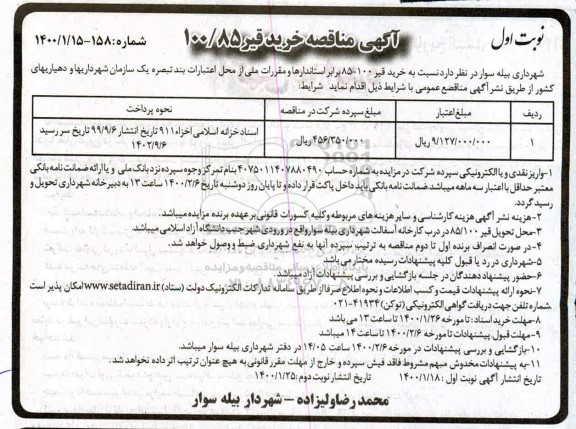 نوبت اول
آگهی مناقصه خرید قیر ۱۰۰/۸۵
شماره: ۱۵۸-۱۴۰۰/۱/۱۵
شهرداری بیله سوار در نظر دارد نسبت به خرید قیر ۱۰۰-۸۵ برابر استاندارها و مقررات ملی از محل اعتبارات بند تبصره یک سازمان شهرداریها و دهیاریهای
کشور از طریق نشر آگهی مناقصع عمومی با شرایط ذیل اقدام نماید شرایط:
ردیف مبلغ اعتبار مبلغ سپرده شرکت در مناقصه نحوه پرداخت
۱ ۹/۱۲۷/۰۰۰/۰۰۰ ریال ۴۵۶/۳۵۰/۰۰۰ ریال اسناد خزانه اسلامی اخزاء ۹۱۱ تاریخ انتشار ۹۹/۹/۶ تاریخ سر رسید
۱۴۰۲/۹/۶
۱-واریز نقدی و یا الکترونیکی سپرده شرکت در مزایده به شماره حساب ۴۰۷۵۰۱۱۴۰۷۸۸۰۴۹۰ بنام تمرکز وجوه سپرده نزد بانک ملی و یا ارائه ضمانت نامه بانکی
معتبر حداقل با اعتبار سه ماهه میباشد.ضمانت نامه بانکی باید داخل پاکت قرار داده و تا پایان روز دوشنبه تاریخ ۱۴۰۰/۲/۶ ساعت ۱۳ به دبیرخانه شهرداری تحویل و
رسید گردد.
۲-هزینه نشر آگهی هزینه کارشناسی و سایر هزینه های مربوطه و کلیه کسورات قانونی بر عهده برنده مزایده میباشد.
۳-محل تحویل قیر ۸۵/۱۰۰ در درب کارخانه آسفالت شهرداری بیله سوار واقع در ورودی شهر جنب دانشگاه آزاد اسلامی میباشد.
۴-در صورت انصراف برنده اول تا دوم مناقصه به ترتیب سپرده آنها به نفع شهرداری ضبط و وصول خواهد شد.
۵-شهرداری در رد یا قبول کلیه پیشنهادات رسیده مختار می باشد
۶-حضور پیشنهاد دهندگان در جلسه بازگشایی و بررسی پیشنهادات آزاد میباشد.
۷-نحوه ارائه پیشنهادات قیمت و کسب اطلاعات و نحوه اطلاع از طریق سامانه تدارکات الکترونیک دولت (ستاد) www.setadiran.ir امکان پذیر است
.شماره تلفن جهت دریافت گواهی الکترونیکی (توکن) ۴۱۹۳۴-۰۲۱
۸-مهلت خرید اسناد: تا مورخه ۱۴۰۰/۱/۲۶ تا ساعت ۱۳ می باشد
۹-مهلت قبول پیشنهادات تا مورخه ۱۴۰۰/۲/۶ تا ساعت ۱۴ میباشد
۱۰-بازگشایی و بررسی پیشنهادات در مورخه ۱۴۰۰/۲/۶ ساعت ۱۴/۰۵ در دفتر شهرداری بیله سوار میباشد.
۱۱-به پیشنهادات مخدوش مبهم مشروط فاقد فیش سپرده و خارج از مهلت مقرر قانونی به هیچ عنوان ترتیب اثر داده نخواهد شد.
تاریخ انتشار آگهی نوبت اول : ۱۴۰۰/۱/۱۸ تاریخ انتشار نوبت دوم: ۱۴۰۰/۱/۲۵
محمد رضا ولیزاده - شهردار بیله سوار